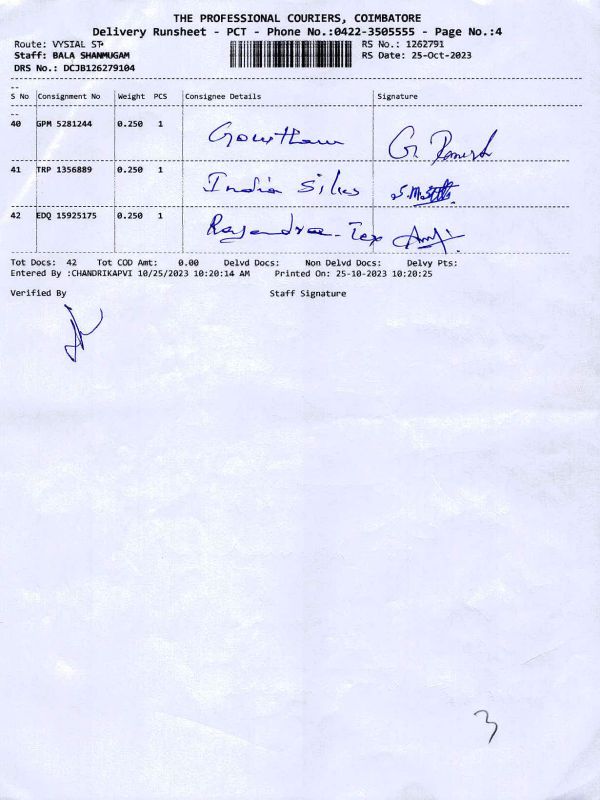 THE PROFESSIONAL COURIERS, COIMBATORE
Delivery Runsheet - PCT - Phone No.:0422-3505555 - Page No.:4
Route: VYSIAL ST RS No.: 1262791
Staff: BALA SHANMUGAM RS Date: 25-Oct-2023
DRS No.: DCJB126279104
S No Consignment No Weight PCS Consignee Details Signature
40 GPM 5281244 0.250 1 Gowtham G. Ramesh
41 TRP 1356889 0.250 1 India Silks
42 EDQ 15925175 0.250 1 Rajendra. Tex
Tot Docs: 42 Tot COD Amt: 0.00 Delvd Docs: Non Delvd Docs: Delvy Pts:
Entered By :CHANDRIKAPVI 10/25/2023 10:20:14 AM Printed On: 25-10-2023 10:20:25
Verified By Staff Signature
3